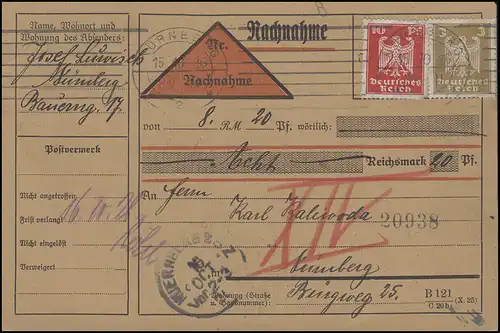 Name, Wohnort und
Wohnung des Absenders:
Josef
Nürnberg
17.
Postvermerk
Nicht angetroffen
Frist verlangt
Nicht eingelöst
Verweigert
Nachnahme
Nr.
Nachnahme
10 Pf
Deutsches
Reich
3 3
Deutsches
Reich
von 8. R.M 20 Pf. wörtlich:
Acht Reichsmark 20 Pf.
An Herrn
Karl Kaliwoda
20938
XIV
in Nürnberg
Burgweg 25.
Wohnung (Straße
u. Hausnummer)
B 121
C 20b
(X. 25)